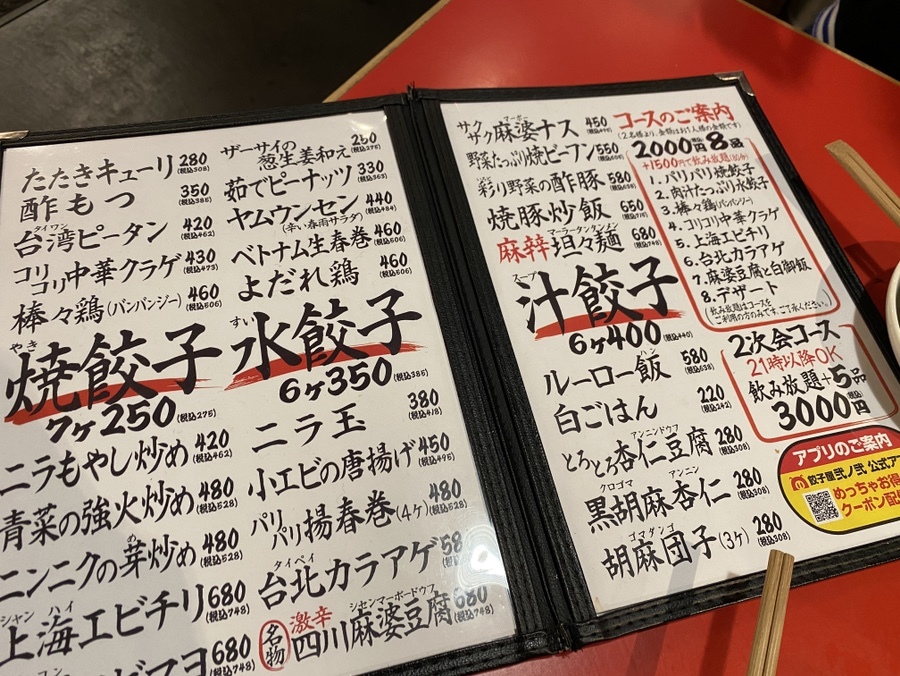 たたきキューリ 280 (税込308)
酢もつ 350 (税込385)
タイワン
台湾ピータン 420 (税込462)
コリコリ中華クラゲ 430 (税込473)
棒々鶏(バンバンジー) 460 (税込506)
やき
焼餃子
7ヶ250 (税込275)
ニラもやし炒め 420 (税込462)
青菜の強火炒め 480 (税込528)
ニンニクの芽炒め 480 (税込528)
シャンハイ
上海エビチリ 680 (税込748)
ビマヨ 680 (税込748)
ザーサイの
葱生姜和え
茹でピーナッツ 330 (税込363)
ヤムウンセン 440 (税込484)
(辛い春雨サラダ)
ベトナム生春巻 460 (税込506)
よだれ鶏 460 (税込506)
すい
水餃子
6ヶ350 (税込385)
ニラ玉 380 (税込418)
小エビの唐揚げ 450 (税込495)
パリパリ揚春巻(4ヶ) 480 (税込528)
タイペイ
台北カラアゲ 58
名物 激辛
シセンマーボードウフ
四川麻婆豆腐 680 (税込748)
マーボー
サクサク麻婆ナス 450 (税込495)
野菜たっぷり焼ビーフン 550
彩り野菜の酢豚 580 (税込638)
焼豚炒飯 650
マーラータンタンメン
麻辛坦々麺 680 (税込748)
スープ
汁餃子
6ヶ400 (税込440)
ハン
ルーロー飯 580 (税込638)
白ごはん 220 (税込242)
アンニンドウフ
とろとろ杏仁豆腐 280 (税込308)
クロゴマ アンニン
黒胡麻杏仁 280 (税込308)
ゴマダンゴ
胡麻団子(3ヶ) 280 (税込308)
コースのご案内
(2名様より、金額はお1人様の金額です)
2000円 8品
+1500円で飲み放題
1.パリパリ焼餃子
2.肉汁たっぷり水餃子
3.棒々鶏(バンバンジー)
4.コリコリ中華クラゲ
5.上海エビチリ
6.台北カラアゲ
7.麻婆豆腐と白御飯
8.デザート
(飲み放題はコースを
ご利用の方のみです。ご了承ください。)
2次会コース
21時以降OK
飲み放題+5品
3000円
アプリのご案内
餃子屋弐ノ弐 公式ア
めっちゃお得
クーポン配